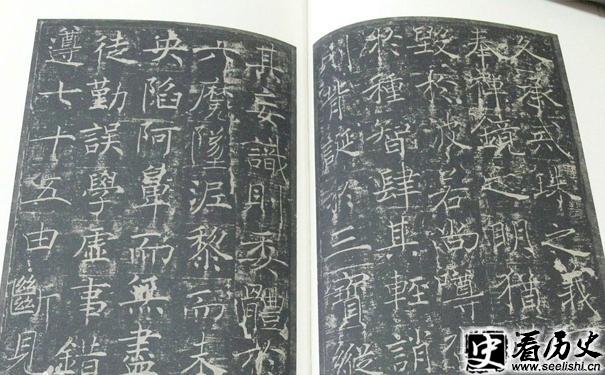 奉戒珠之義
奉禪鏡之明猶
毀於波若尚
於種智肆其輕誚
誕於三寶縱
其妄識則委體於
六魔墜泥黎而未
央陷阿鼻而無盡
徒勤誤學虛事錯
遵七十五由斷見
史 看历史
www.seelishi.cn